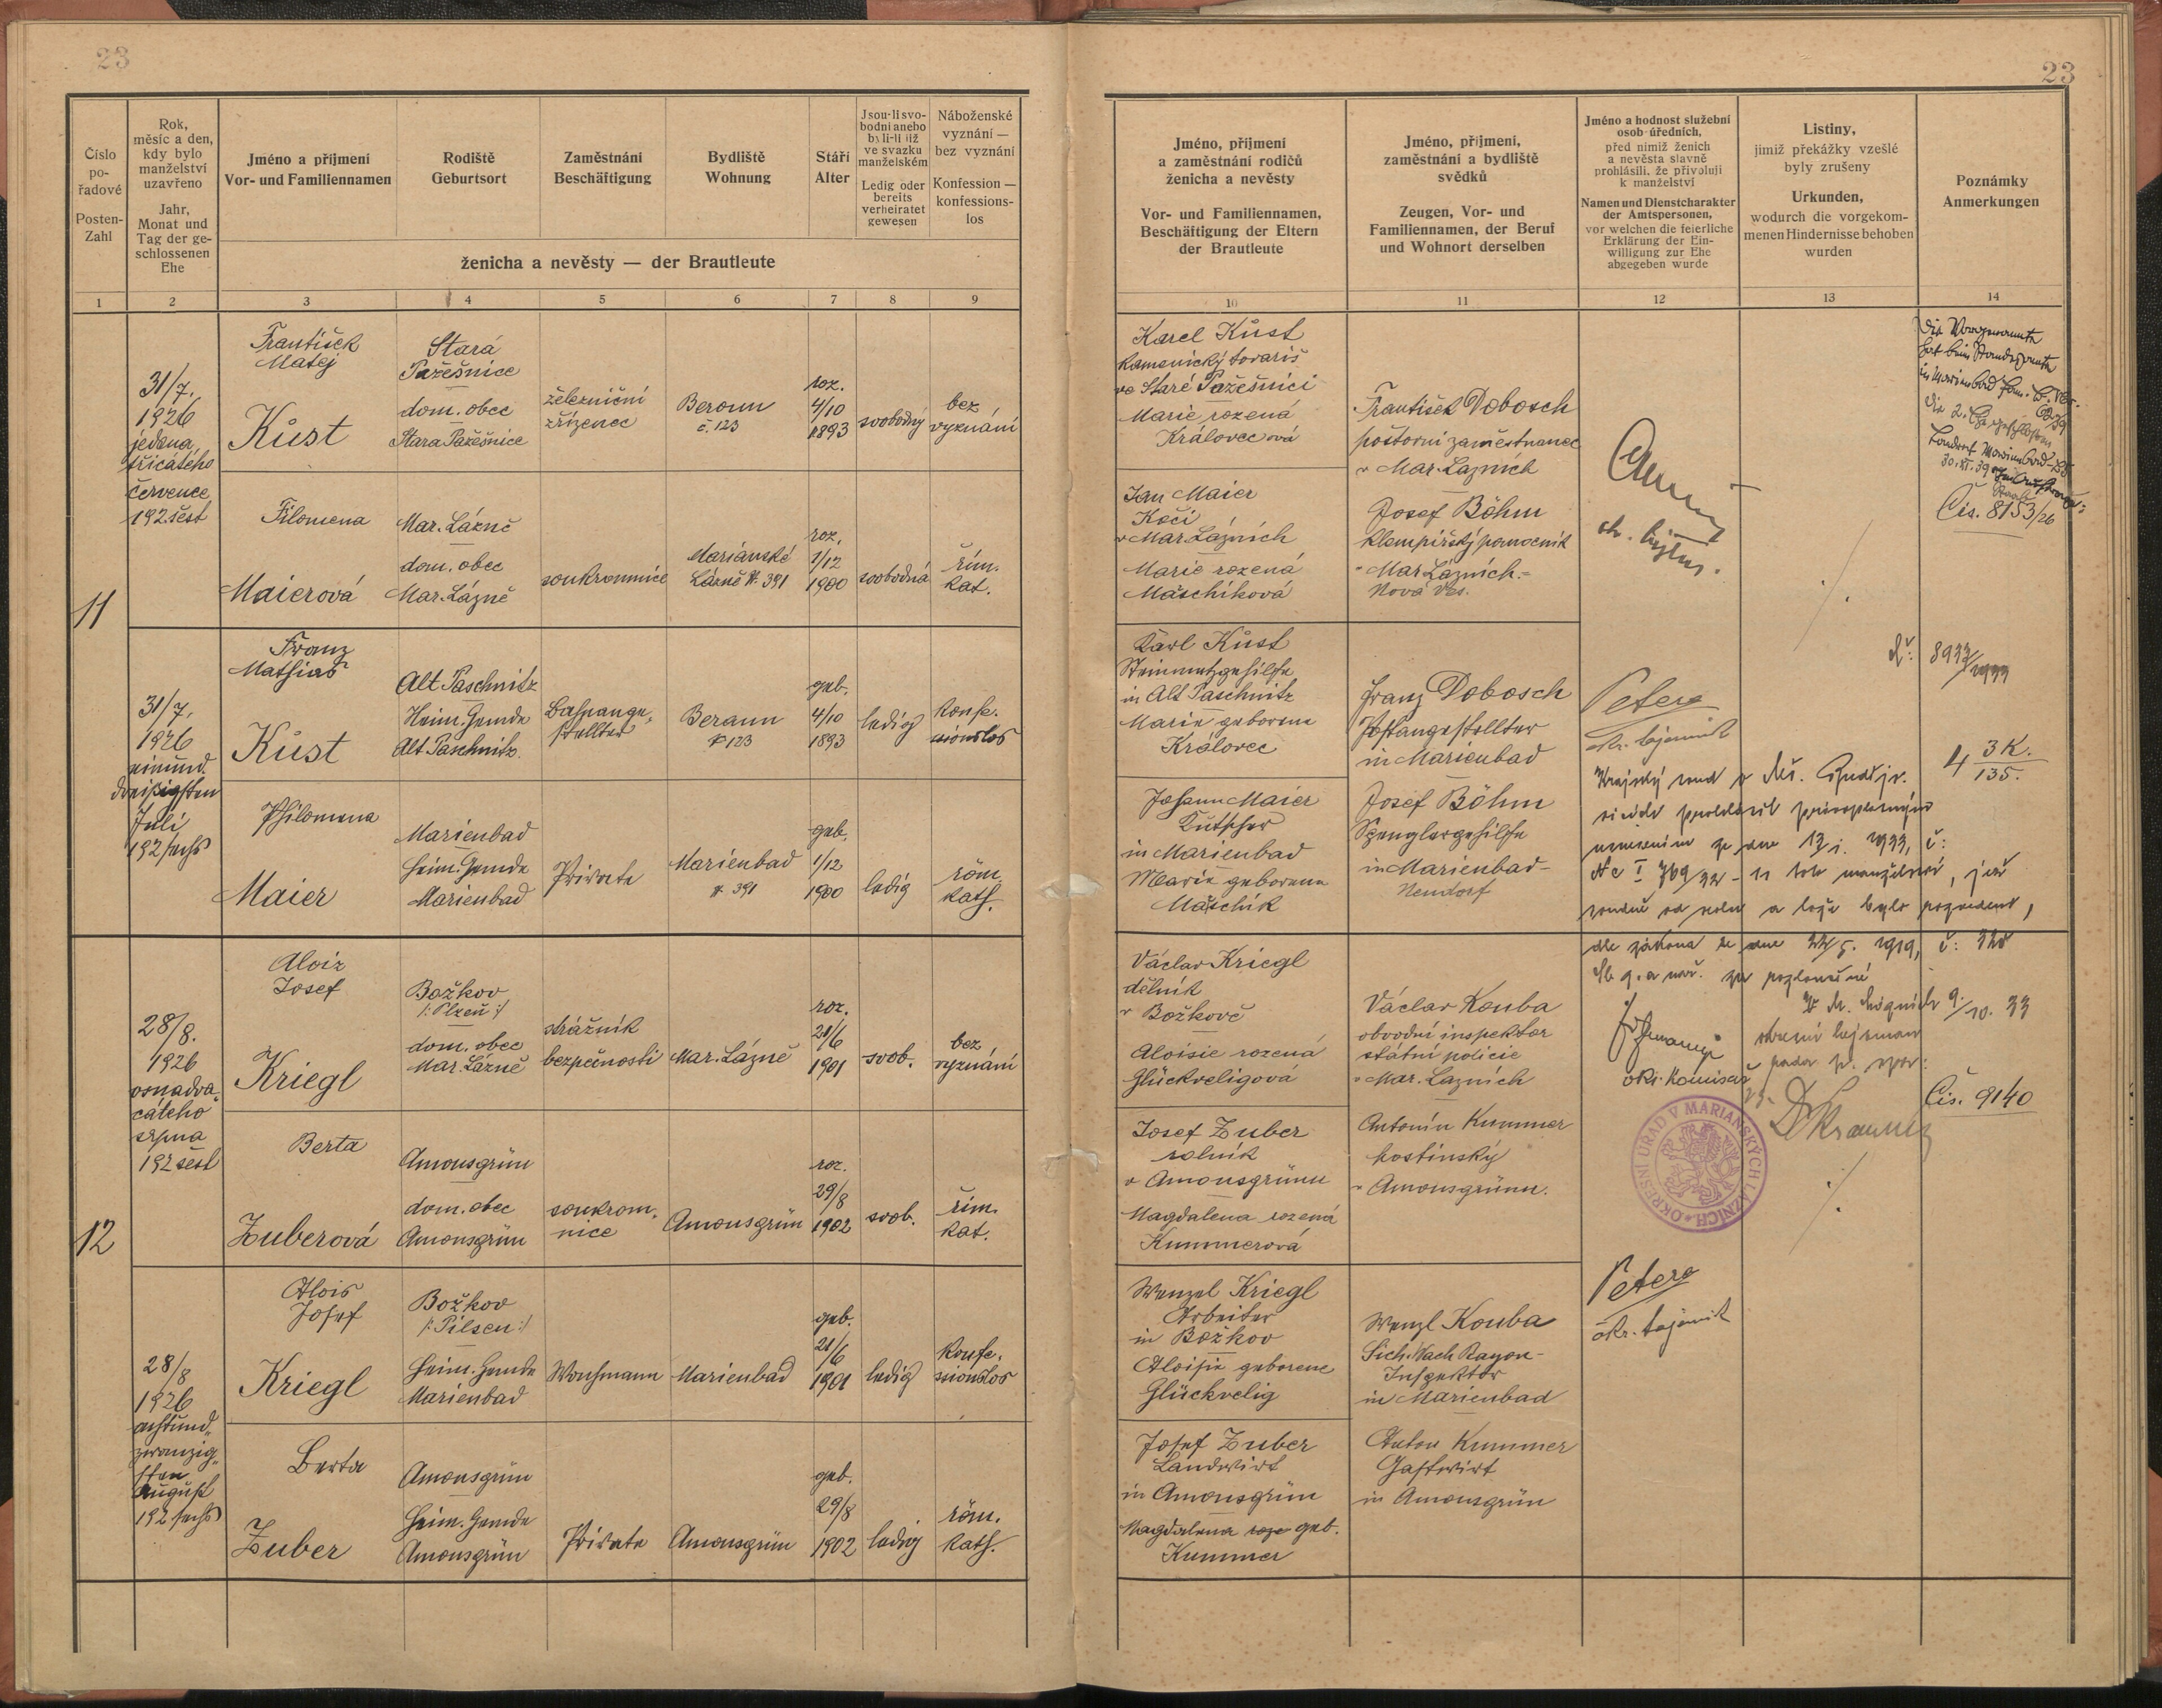 23
23
Číslo po-řadové
Posten-Zahl
Rok, měsíc a den, kdy bylo manželství uzavřeno
Jahr, Monat und Tag der ge-schlossenen Ehe
Jméno a příjmení
Vor- und Familiennamen
Rodiště
Geburtsort
Zaměstnání
Beschäftigung
Bydliště
Wohnung
Stáří
Alter
Jsou-li svo-bodni anebo byli-li již ve svazku manželském
Ledig oder bereits verheiratet gewesen
Náboženské vyznání — bez vyznání
Konfession — konfessions-los
ženicha a nevěsty — der Brautleute
Jméno, příjmení a zaměstnání rodičů ženicha a nevěsty
Vor- und Familiennamen, Beschäftigung der Eltern der Brautleute
Jméno, příjmení, zaměstnání a bydliště svědků
Zeugen, Vor- und Familiennamen, der Beruf und Wohnort derselben
Jméno a hodnost služební osob úředních, před nimiž ženich a nevěsta slavně prohlásili, že přivolují k manželství
Namen und Dienstcharakter der Amtspersonen, vor welchen die feierliche Erklärung der Ein-willigung zur Ehe abgegeben wurde
Listiny, jimiž překážky vzešlé byly zrušeny
Urkunden, wodurch die vorgekom-menen Hindernisse behoben wurden
Poznámky
Anmerkungen
1 2 3 4 5 6 7 8 9 10 11 12 13 14
11
31/7.
1926
jedena
třicátého
července
192 šest
František
Matej
Kůst
Stará
Pažešnice
dom. obec
Stara Pažešnice
železniční
zřízenec
Beroun
č. 123
roz.
4/10
1893
svobodný
bez
vyznání
Karel Kůst
kamenický tovariš
ve Staré Pažešnici
Marie rozená
Královecová
František Dobosch
poštovní zaměstnanec
v Mar. Lazních
Filomena
Maierová
Mar. Lázně
dom. obec
Mar. Lázně
soukromnice
Mariánské
Lázně № 391
roz.
1/12
1900
svobodná
řím.
kat.
Jan Maier
Kočí
v Mar. Lázních
Marie rozená
Maschiková
Josef Böhm
klempířský pomocník
v Mar. Lázních -
Nová Ves.
Die Vorgenannte
hat beim Standesamte
in Marienbad
die 2. Ehe geschlossen
Marienbad
30. XI. 39
Čis. 8153/26
31/7.
1926
einund
dreißigsten
Juli
192 sechs
Franz
Mathias
Kůst
Alt Paschnitz
Heim. Gemde
Alt Paschnitz
Bahnange-
stellter
Beraun
№ 123
geb.
4/10
1893
ledig
konfe-
ssionslos
Karl Kůst
Steinmetzgehilfe
in Alt Paschnitz
Marie geborene
Královec
Franz Dobosch
Postangestellter
in Marienbad
Peters
Philomena
Maier
Marienbad
Heim. Gemde
Marienbad
Private
Marienbad
№ 391
geb.
1/12
1900
ledig
röm.
kath.
Johann Maier
Kutscher
in Marienbad
Marie geborene
Maschik
Josef Böhm
Spenglergehilfe
in Marienbad-
Neudorf
č: 8933/1933
4 3 K.
135.
Krajský soud v
ze dne 13/1. 1933, č:
Nc I 769/32 - 11 toto manželství, jež
soudně od stolu a lože bylo rozvedeno,
dle zákona ze dne 22/5. 1919, č: 320
Sb. z. a nař. za rozloučené
9/10. 33
okr. komisař
OKRESNÍ ÚŘAD V MARIÁNSKÝCH LÁZNÍCH
12
28/8.
1926
osmadva-
cátého
srpna
192 šest
Alois
Josef
Kriegl
Božkov
/: Plzeň :/
dom. obec
Mar. Lázně
strážník
bezpečnosti
Mar. Lázně
roz.
21/6
1901
svob.
bez
vyznání
Václav Kriegl
dělník
v Božkově
Aloisie rozená
Glückseligová
Václav Kouba
obvodní inspektor
státní policie
v Mar. Lazních
Čis. 9140
Berta
Zuberová
Amonsgrün
dom. obec
Amonsgrün
soukrom-
nice
Amonsgrün
roz.
29/8
1902
svob.
řím.
kat.
Josef Zuber
rolník
v Amonsgrünu
Magdalena rozená
Kummerová
Antonín Kummer
hostinský
v Amonsgrünu.
28/8
1926
achtund-
zwanzig-
sten
August
192 sechs
Alois
Josef
Kriegl
Božkov
/: Pilsen :/
Heim. Gemde
Marienbad
Wachmann
Marienbad
geb.
21/6
1901
ledig
konfe-
ssionslos
Wenzel Kriegl
Arbeiter
in Božkov
Aloisie geborene
Glückselig
Wenzl Kouba
Sich. Wach Rayon-
Inspektor
in Marienbad
Peters
Berta
Zuber
Amonsgrün
Heim. Gemde
Amonsgrün
Private
Amonsgrün
geb.
29/8
1902
ledig
röm.
kath.
Josef Zuber
Landwirt
in Amonsgrün
Magdalena roze geb.
Kummer
Anton Kummer
Gastwirt
in Amonsgrün